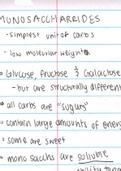 MONOSACCHARIDES
- simplest unit of carbs
- low molecular weight
- Glucose, Fructose & Galactose
- but are structurally different
- all carbs are "sugars"
- contain large amounts of energy
- some are sweet
- mono sacchs are soluble